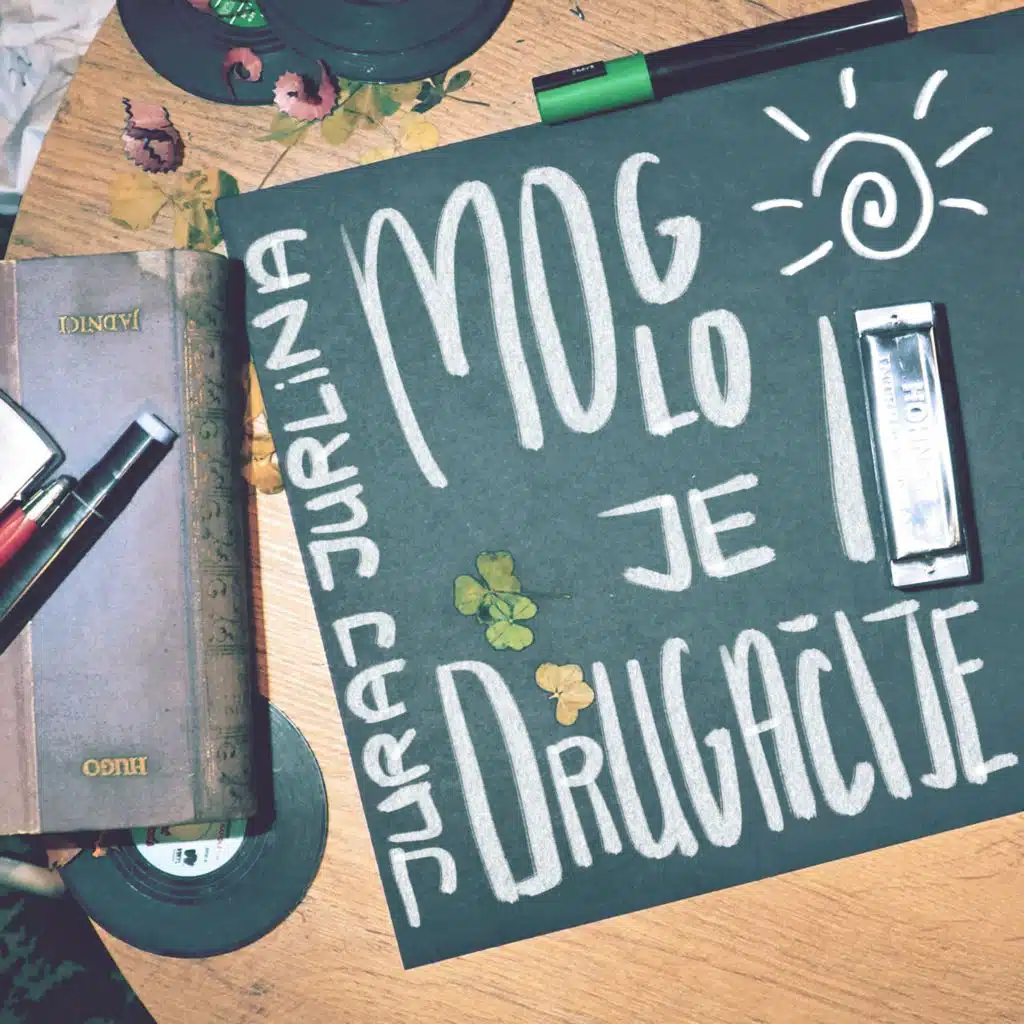 JURAJ JURLINA
MOG
LO
JE I
DRUGAČIJE
JADNICI
HUGO